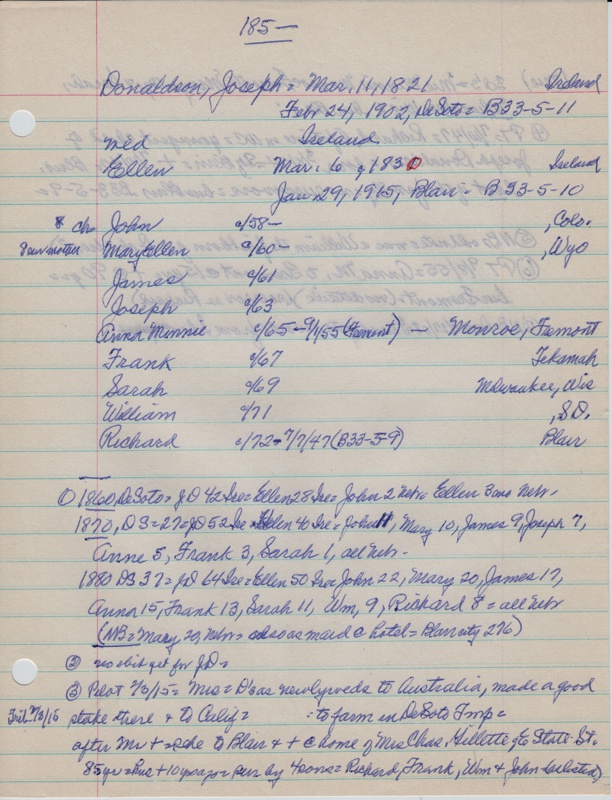 185—
Donaldson, Joseph = Mar, 11, 1821 Ireland
Febr 24, 1902, DeSoto = B33-5-11
wed Ireland
Ellen Mar. 6, 1830 Ireland
Jan 29, 1915, Blair = B33-5-10
8 ch= John c/58- , Colo.
& our mother Mary Ellen c/60- , Wyo
James c/61
Joseph c/63
Anna Minnie c/65-9/1/55 (Fremont) — Monroe, Fremont
Frank c/67 Tekamah
Sarah c/69 Milwaukee, Wis
William c/71 , S.D.
Richard c/72-7/7/47 (B33-5-9) Blair
① 1860, DeSoto = JD 42 Ire = Ellen 28 Ire = John 2 Nebr. Ellen 3 mo Nebr.
1870, DS = 27 = JD 52 Ire = Ellen 40 Ire = John 11, Mary 10, James 9, Joseph 7,
Anne 5, Frank 3, Sarah 1, all Nebr.
1880 DS 37 = JD 64 Ire = Ellen 50 Ire John 22, Mary 20, James 17,
Anna 15, Frank 13, Sarah 11, Wm, 9, Richard 8 = all Nebr
(NB = Mary 20, Nebr = also as maid @ hotel = Blair city 276)
② no obit yet for JD =
③ Pilot 2/3/15 = Mrs = D's as newlyweds to Australia, made a good
Trib 2/3/15 stake there & to Calif = to farm in DeSoto Twp =
after Mr + = she to Blair & + @ home of Mrs Chas. Gillette of E State St.
85 yr = + 10 = sur by 4 sons = Richard, Frank, Wm & John